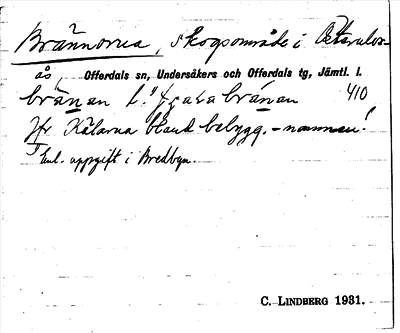 Brännorna, skogsområde i Östervlos-
ås, Offerdals sn, Undersåkers och Offerdals tg, Jämtl. l.
brä̱nan l. brä̱nan 410
Jfr Kälarna bland bebygg.-namnen!
Enl. uppgift i Bredbyn.
C. LINDBERG 1931.